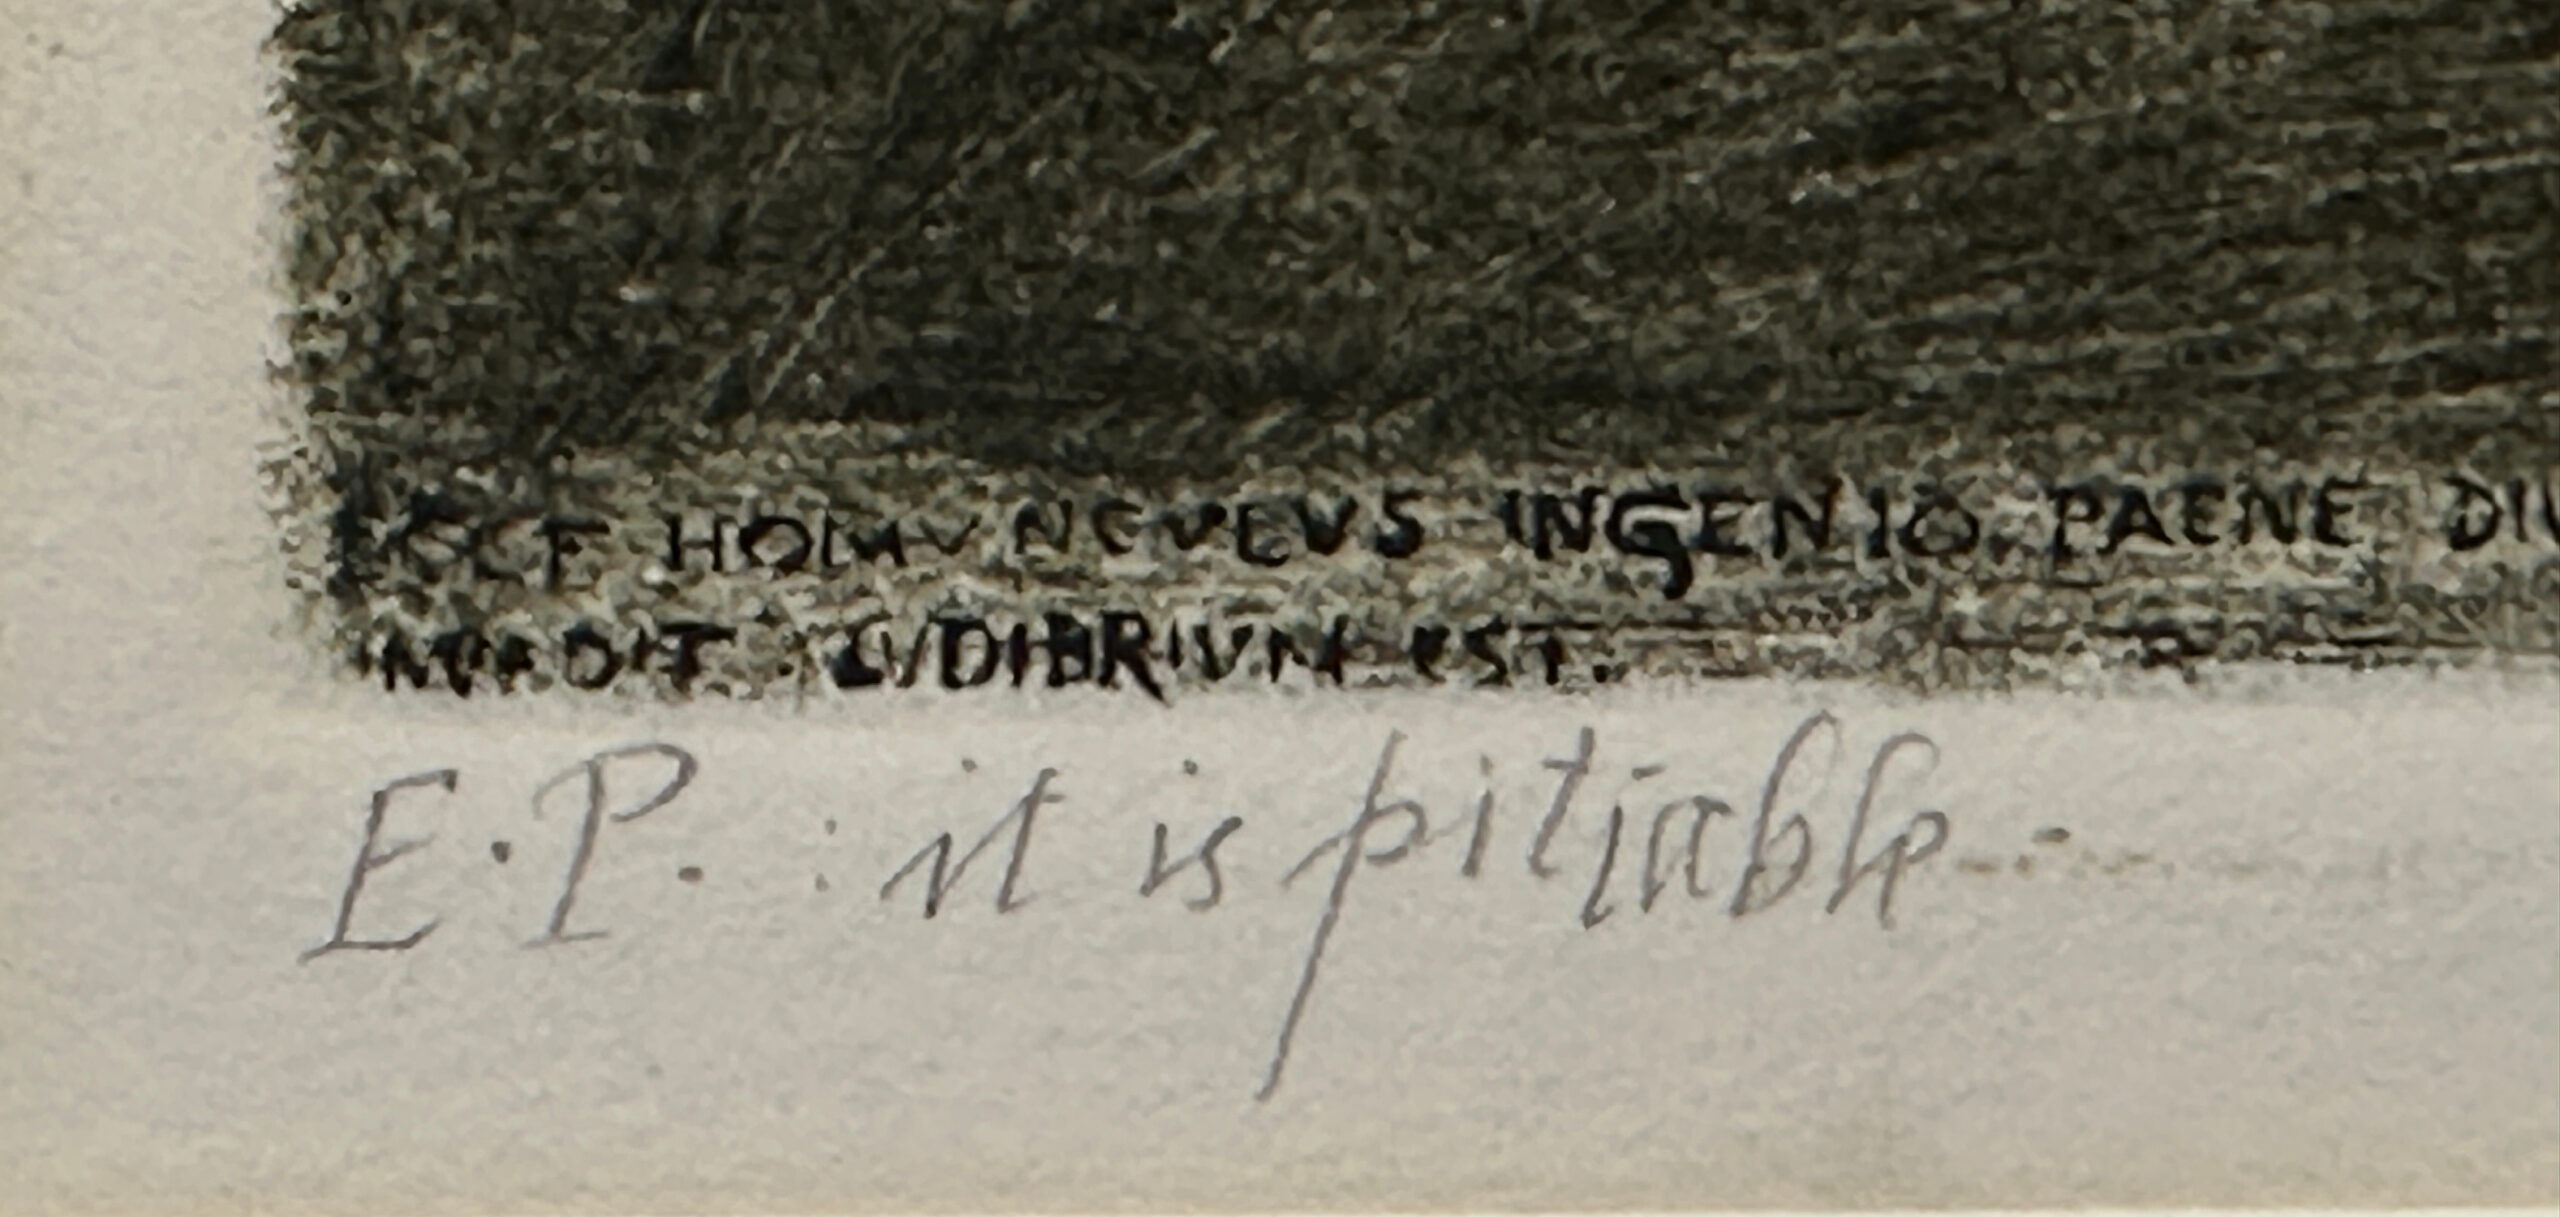 ECCE HOMVNCVLVS INGENIO PAENE DIV
INVADIT LVDIBRIVM EST.
E.P. : it is pitiable